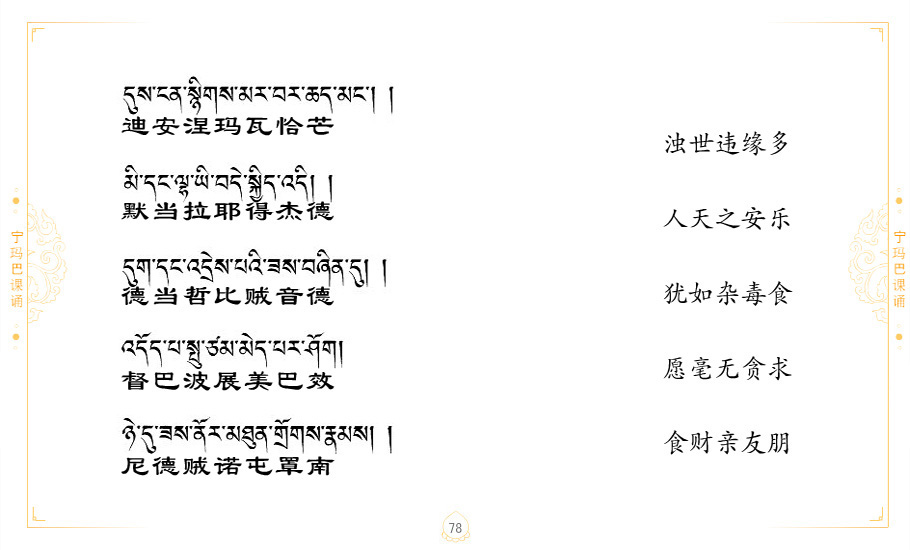 དུས་ངན་སྙིགས་མར་བར་ཆད་མང་། །
迪安涅玛瓦恰芒
浊世违缘多
མི་དང་ལྷ་ཡི་བདེ་སྐྱིད་འདི། །
默当拉耶得杰德
人天之安乐
དུག་དང་འདྲེས་པའི་ཟས་བཞིན་དུ། །
德当哲比贼音德
犹如杂毒食
འདོད་པ་སྤུ་ཙམ་མེད་པར་ཤོག།
督巴波展美巴效
愿毫无贪求
ཉེ་དུ་ཟས་ནོར་མཐུན་གྲོགས་རྣམས། །
尼德贼诺屯罩南
食财亲友朋
宁玛巴课诵
宁玛巴课诵
78